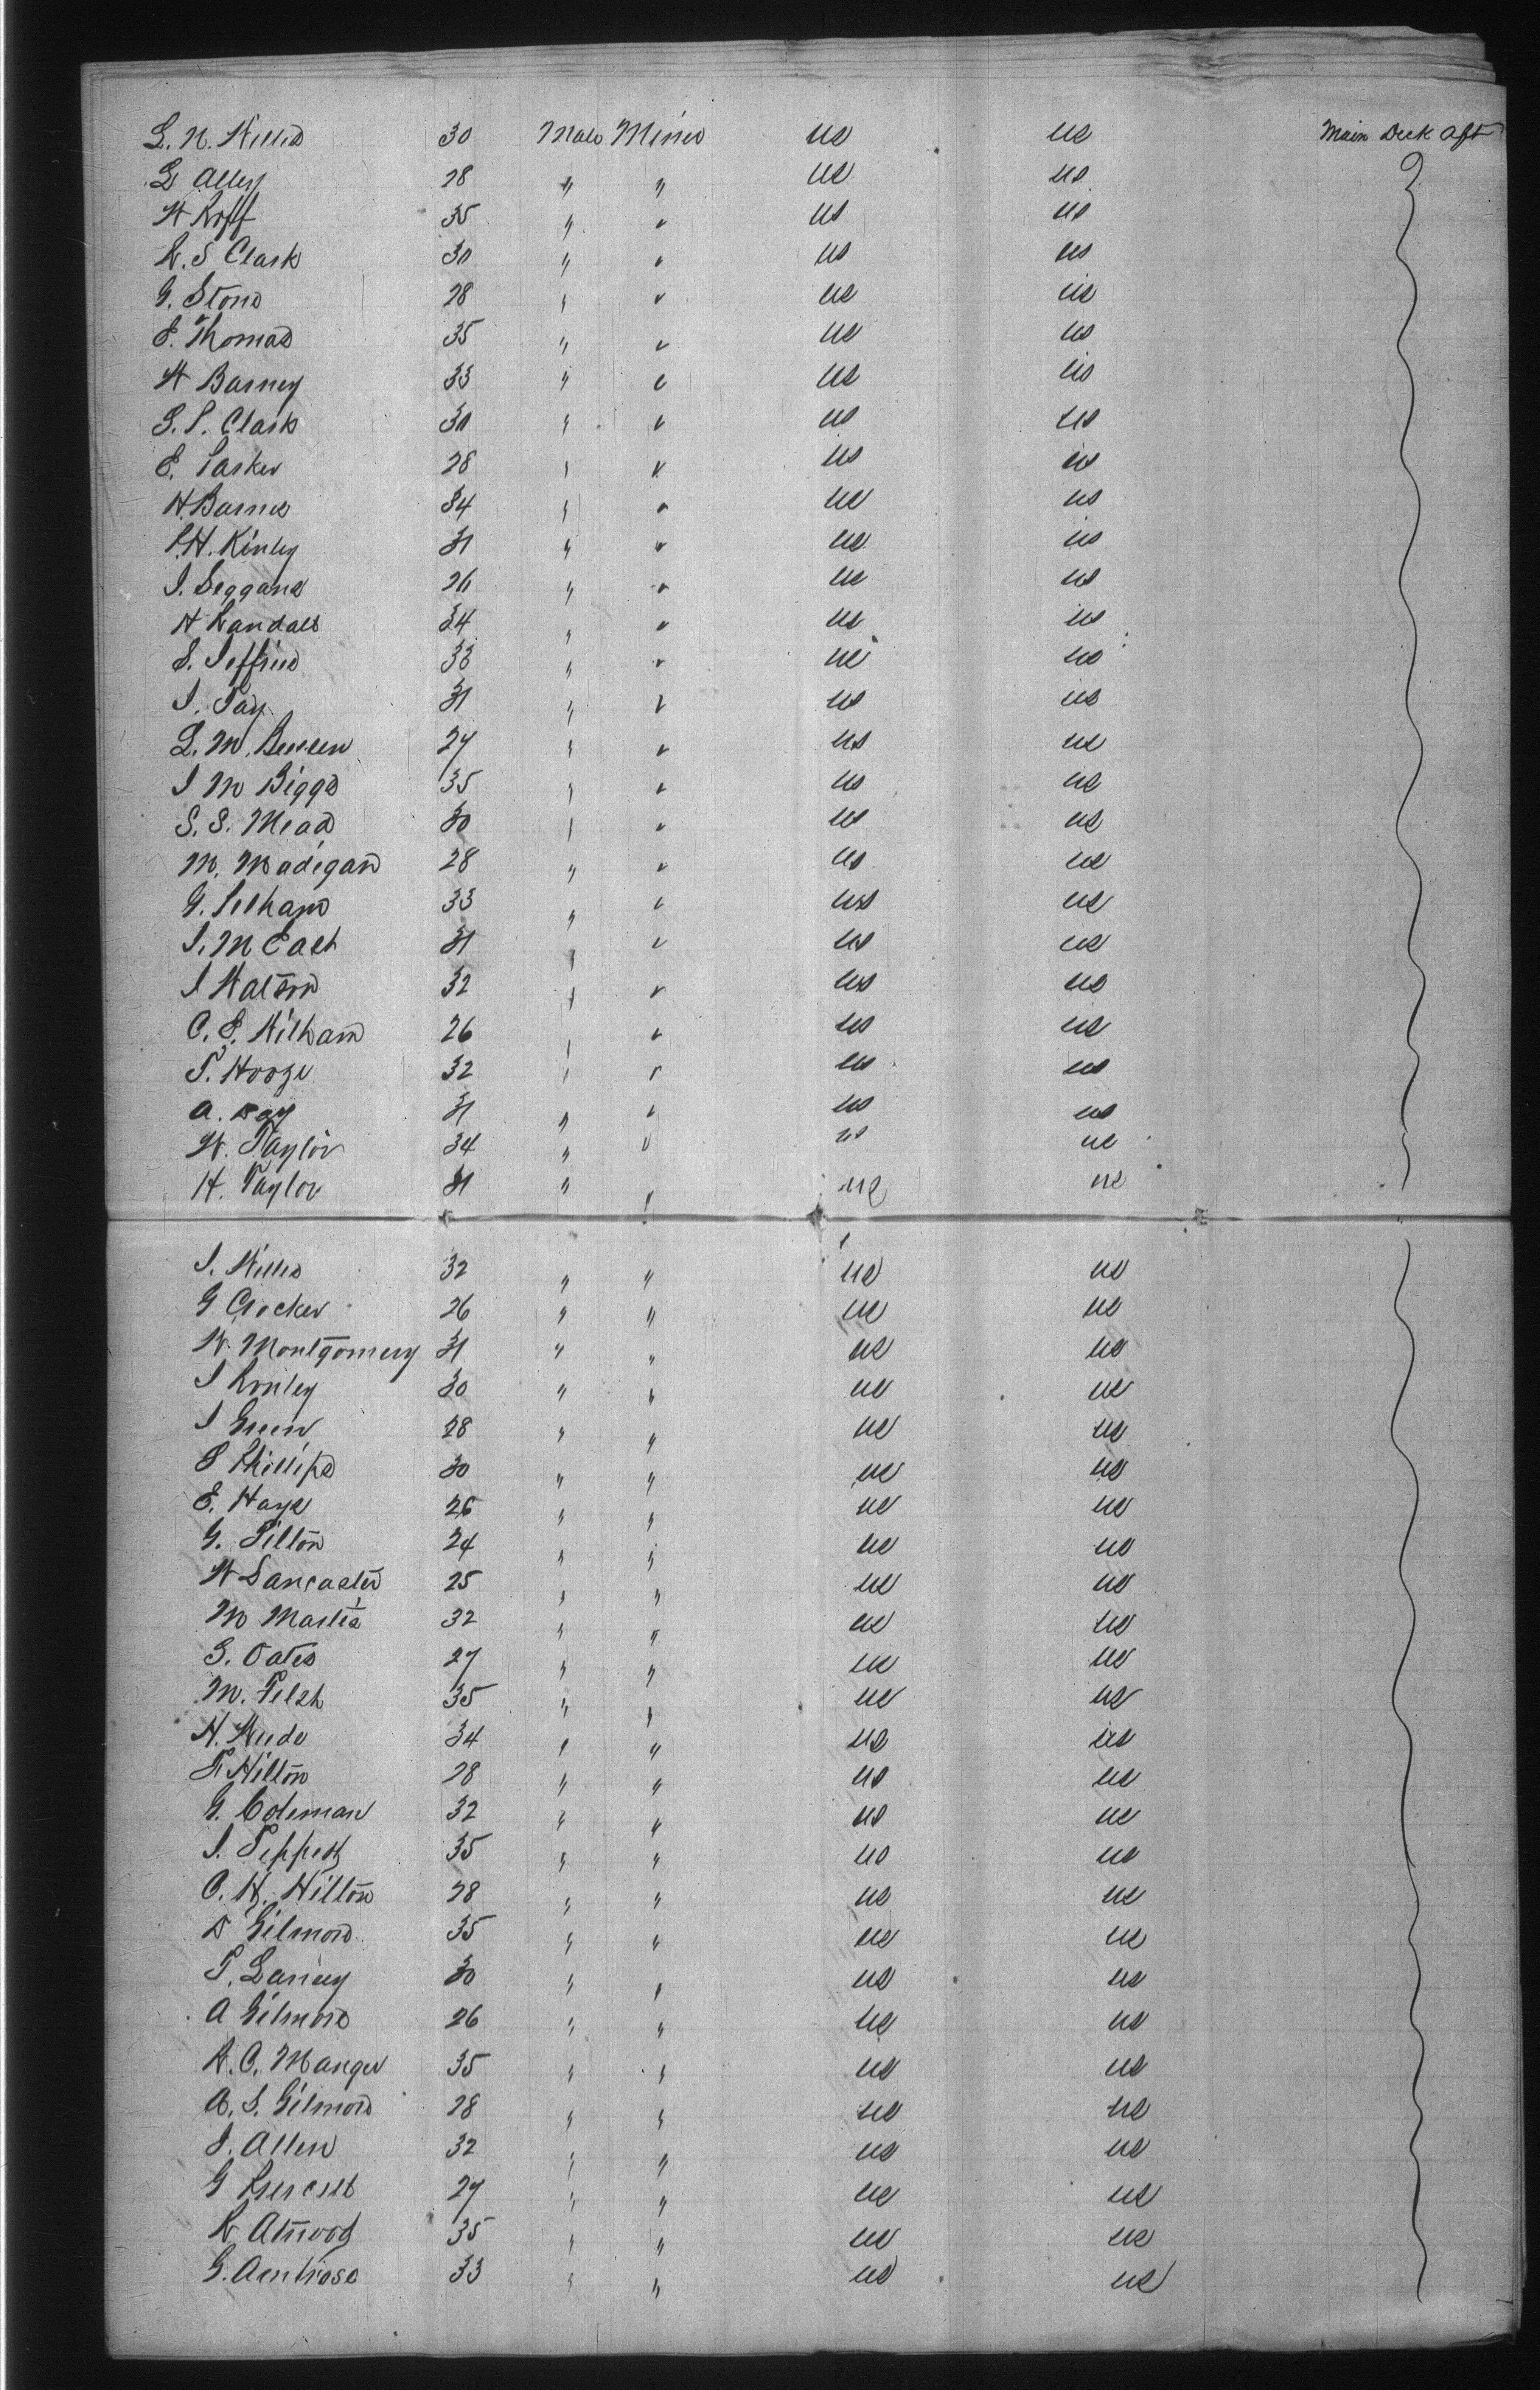 L. N. Willis 30 Male Miner US US Main Deck Aft
L Alley 28 " " US US
W Roff 35 " " US US
R. S Clark 30 " " US US
G. Stone 28 " " US US
E. Thomas 35 " " US US
W Barney 33 " " US US
S. P. Clark 30 " " US US
E. Parker 28 " " US US
H. Barnes 34 " " US US
P. H. Kinley 31 " " US US
J. Seggans 26 " " US US
H Randall 34 " " US US
S. Jeffries 33 " " US US
J. Tay 31 " " US US
L. M. 27 " " US US
J M Biggs 35 " " US US
S. S. Mead 30 " " US US
M. Madigan 28 " " US US
G. Pelham 33 " " US US
J. M East 31 " " US US
J Watson 32 " " US US
C. E. Wilham 26 " " US US
T. 32 " " US US
A. Day 31 " " US US
W. Taylor 34 " " US US
H. Taylor 31 " " US US
J. Willis 32 " " US US
G Crocker 26 " " US US
W. Montgomery 31 " " US US
J 30 " " US US
J Green 28 " " US US
S Phillips 30 " " US US
E. Hays 26 " " US US
G. Tilton 24 " " US US
W Lancaster 25 " " US US
M 32 " " US US
S. Oates 27 " " US US
M. 35 " " US US
N. 34 " " US US
F. Hilton 28 " " US US
G. Coleman 32 " " US US
J. 35 " " US US
C. H. Hilton 28 " " US US
D Gilmore 35 " " US US
T. 30 " " US US
A Gilmore 26 " " US US
R. C. Manger 35 " " US US
A. S. Gilmore 28 " " US US
J. Allen 32 " " US US
G 27 " " US US
R Atwood 35 " " US US
G. Ambrose 33 " " US US